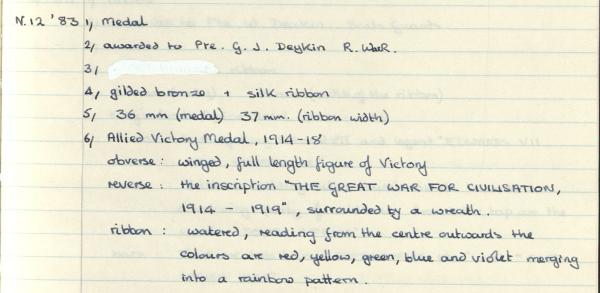 N.12 '83 1, medal
2, awarded to Pte. G. J. Deykin R. WaR.
3,
4, gilded bronze + silk ribbon
5, 36 mm (medal) 37 mm. (ribbon width)
6, Allied Victory Medal, 1914-18
obverse : winged, full length figure of Victory
reverse : the inscription "THE GREAT WAR FOR CIVILISATION,
1914 - 1919", surrounded by a wreath.
ribbon : watered, reading from the centre outwards the
colours are red, yellow, green, blue and violet merging
into a rainbow pattern.